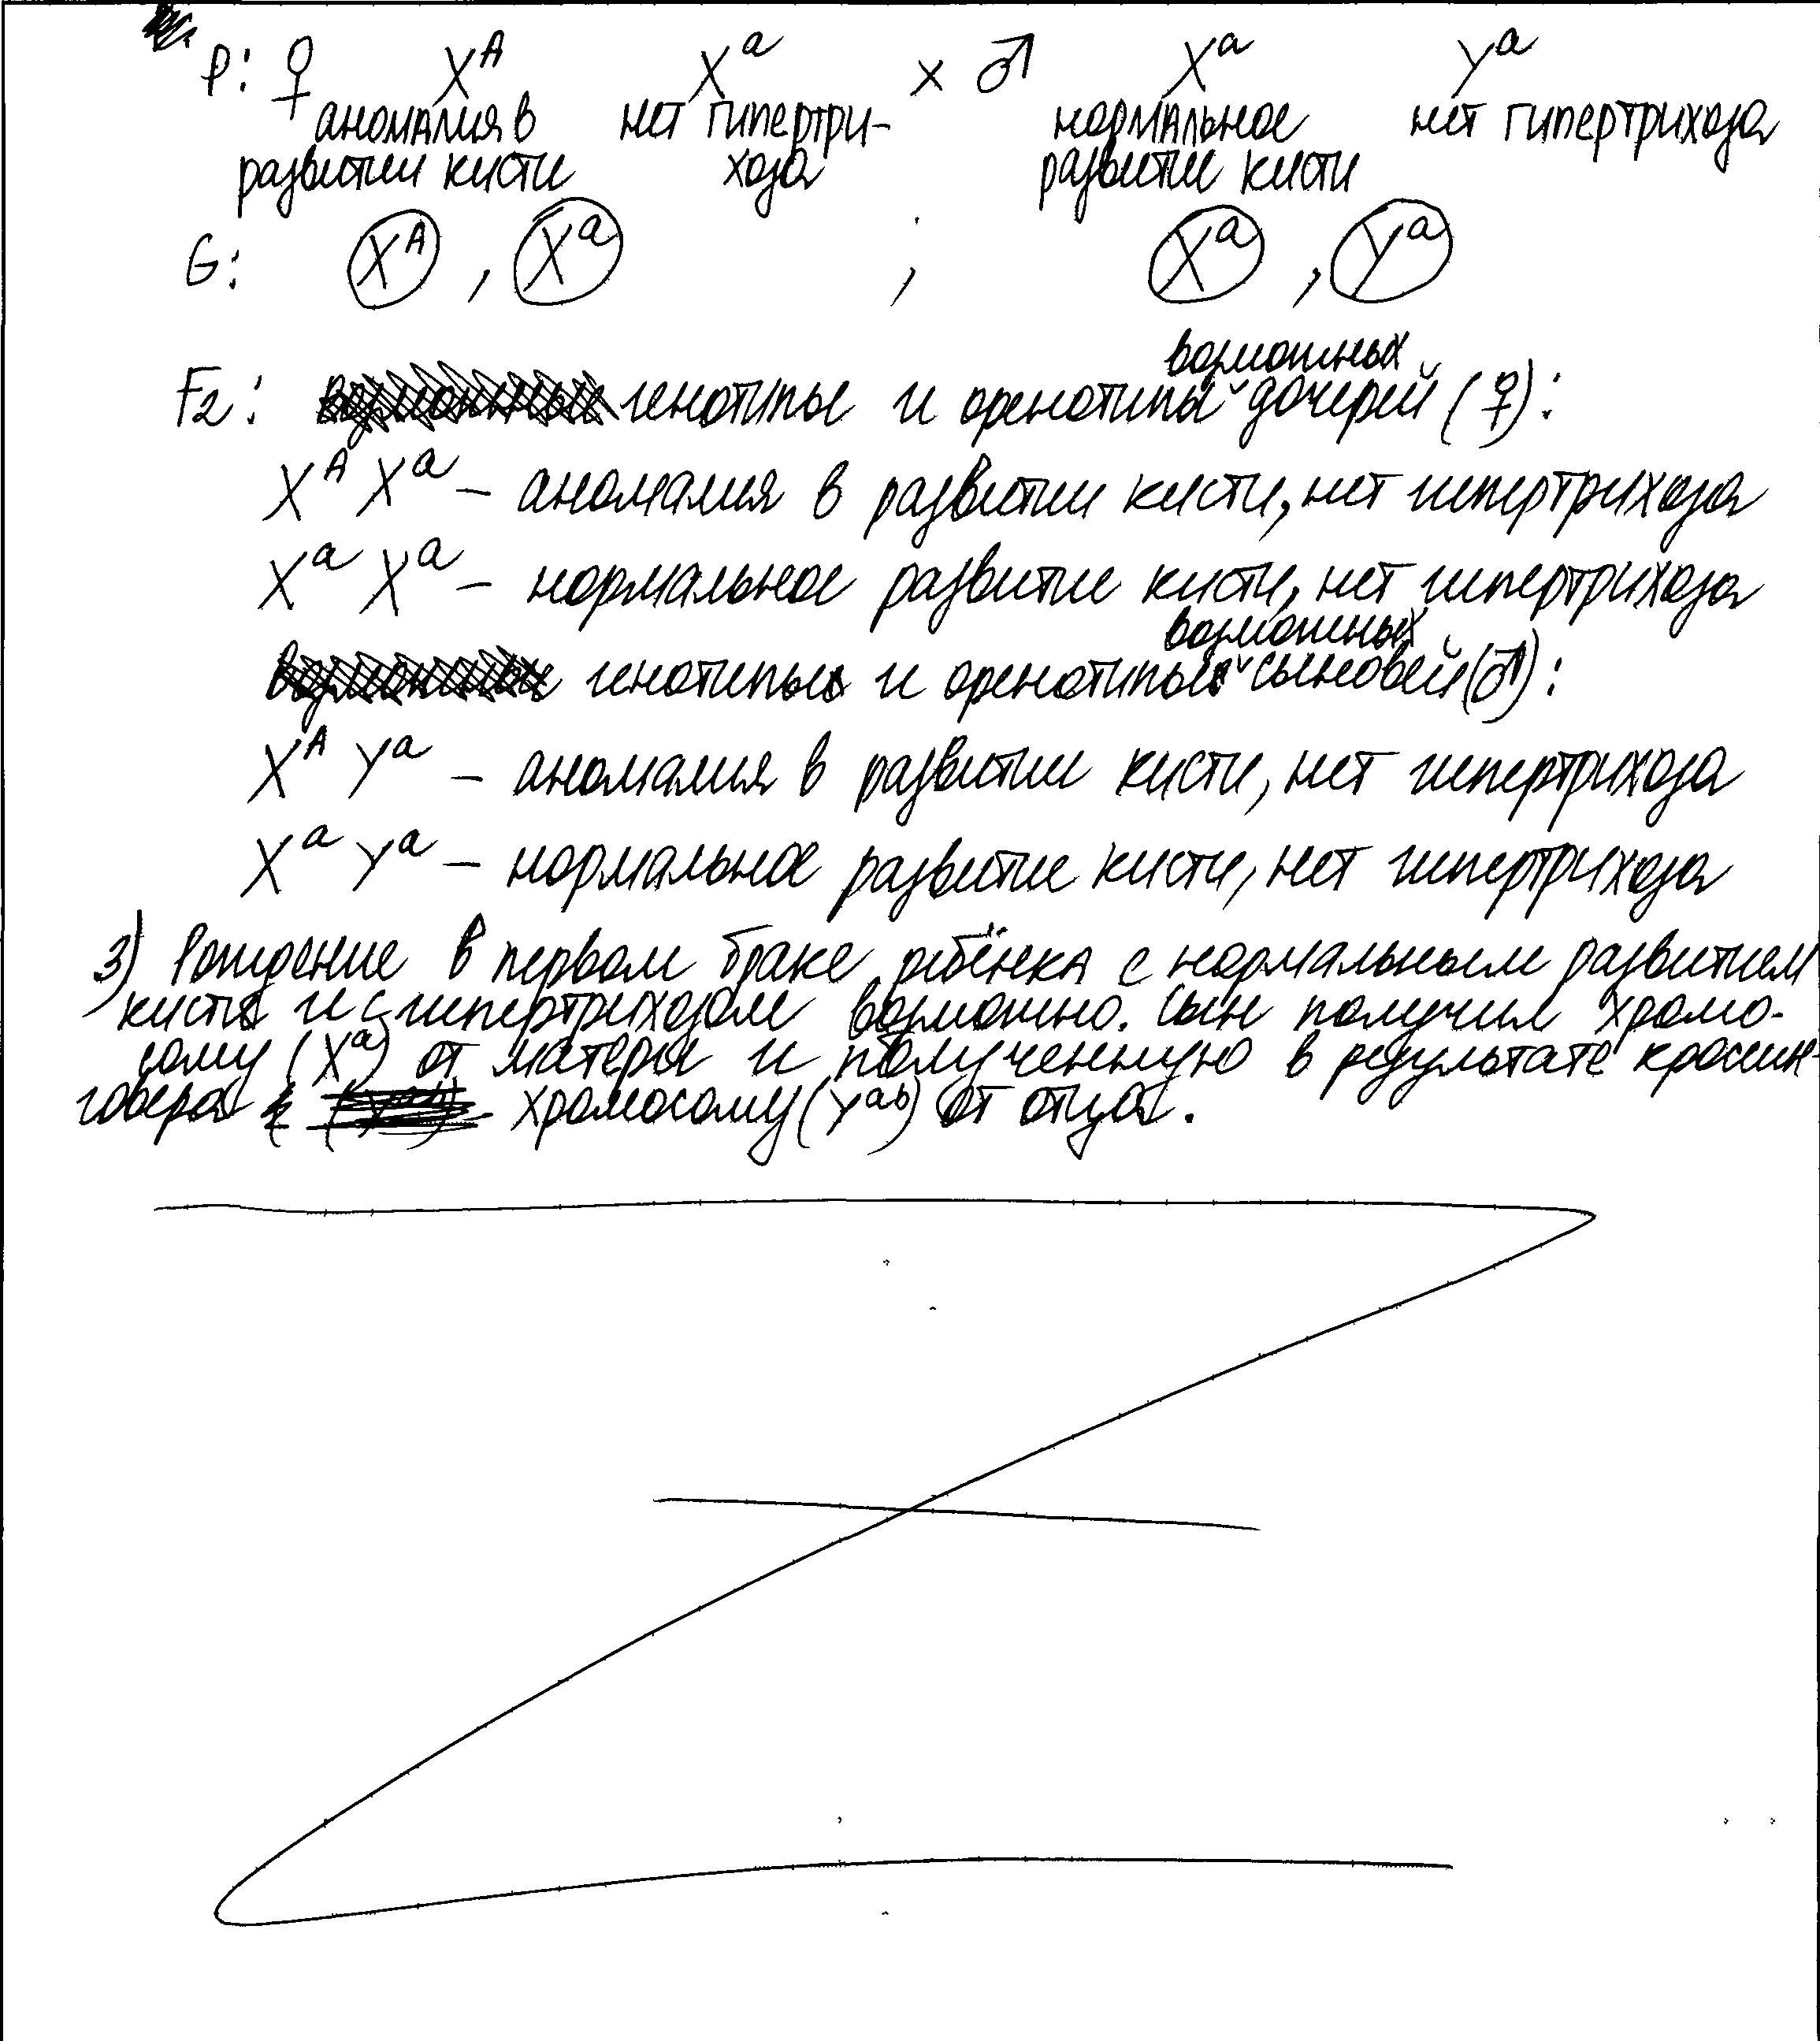 P: ♀ X^A X^a × ♂ X^a Y^a
аномалия в нет гипертри- нормальное нет гипертрихоза
развитии кисти хоза развитие кисти
G: X^A , X^a , X^a , Y^a
возможных
F2: генотипы и фенотипы ˅ дочерей (♀):
X^A X^a – аномалия в развитии кисти, нет гипертрихоза
X^a X^a – нормальное развитие кисти, нет гипертрихоза
возможных
генотипы и фенотипы ˅ сыновей (♂):
X^A Y^a – аномалия в развитии кисти, нет гипертрихоза
X^a Y^a – нормальное развитие кисти, нет гипертрихоза
3) Рождение в первом браке ребёнка с нормальным развитием
кисти и с гипертрихозом возможно. Сын получил хромо-
сому (X^a) от матери и полученную в результате кроссин-
говера хромосому (Y^ab) от отца.